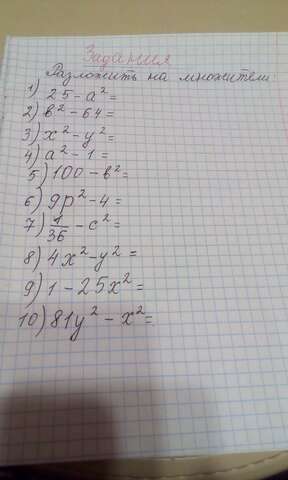 Задания
Разложить на множители
1) 25 - a² =
2) b² - 64 =
3) x² - y² =
4) a² - 1 =
5) 100 - b² =
6) 9p² - 4 =
7) 1/36 - c² =
8) 4x² - y² =
9) 1 - 25x² =
10) 81y² - x² =